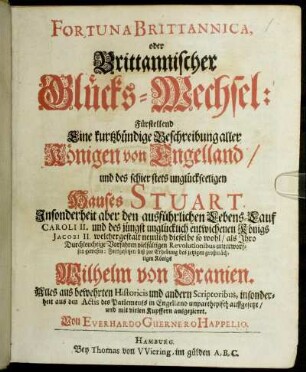 FORTUNA BRITTANNICA,
oder
Brittannischer
Glücks-Wechsel:
Fürstellend
Eine kurtzbündige Beschreibung aller
Königen von Engelland/
und des schier stets unglückseeligen
Hauses STUART.
Insonderheit aber den ausführlichen Lebens-Lauf
CAROLI II. und des jüngst unglücklich entwichenen Königs
JACOBI II. welchergestalt nemlich dieselbe so wohl/ als Ihro
Durchleuchtige Vorfahren vielfältigen Revolutionibus unterworf-
fen gewesen. Fortgesetzet biß zur Erhebung des jetzigen großmäch-
tigen Königs
Wilhelm von Oranien.
Alles aus bewehrten Historicis und andern Scriptoribus, insonder-
heit aus den Actis des Parlements in Engelland unpartheyisch auffgesetzt/
und mit vielen Kupffern ausgezieret.
Von EVERHARDO GUERNERO HAPPELIO.
HAMBURG.
Bey Thomas von VViering, im gülden A.B.C.